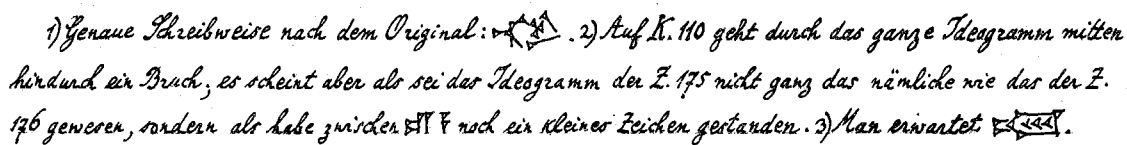 1) Genaue Schreibweise nach dem Original: . 2) Auf K. 110 geht durch das ganze Ideogramm mitten
hindurch ein Bruch; es scheint aber als sei das Ideogramm der Z. 175 nicht ganz das nämliche wie das der Z.
176 gewesen, sondern als habe zwischen noch ein kleines Zeichen gestanden. 3) Man erwartet .